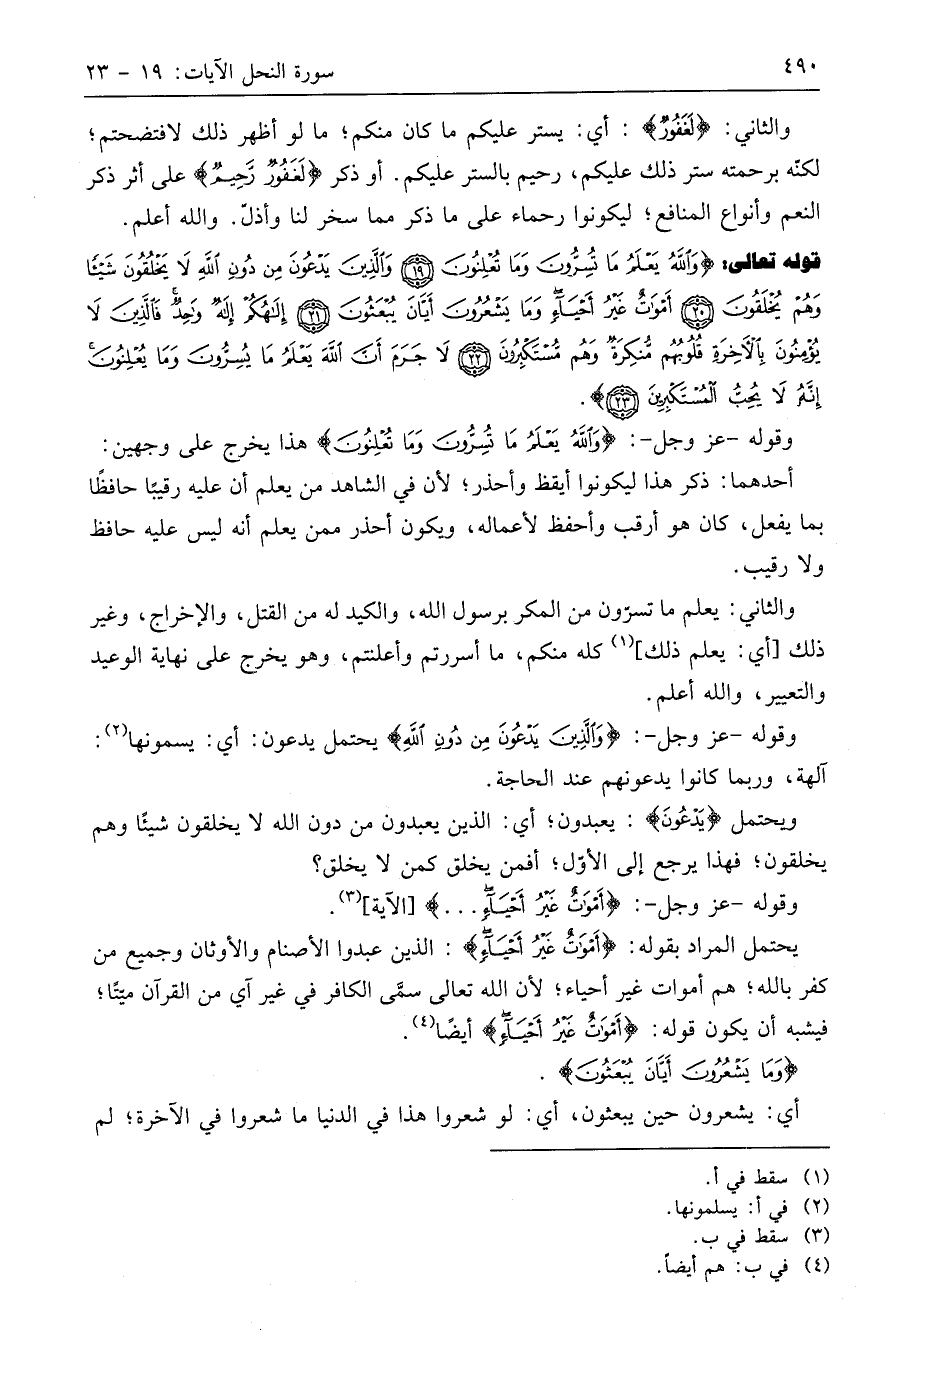 ٤٩٠ سورة النحل الآيات: ١٩ - ٢٣
والثاني: ﴿لَغَفُورٌ﴾ : أي: يستر عليكم ما كان منكم؛ ما لو أظهر ذلك لافتضحتم؛
لكنّه برحمته ستر ذلك عليكم، رحيم بالستر عليكم. أو ذكر ﴿لَغَفُورٌ رَّحِيمٌ﴾ على أثر ذكر
النعم وأنواع المنافع؛ ليكونوا رحماء على ما ذكر مما سخر لنا وأذلّ. والله أعلم.
قوله تعالى: ﴿وَٱللَّهُ يَعْلَمُ مَا تُسِرُّونَ وَمَا تُعْلِنُونَ ﴿١٩﴾ وَٱلَّذِينَ يَدْعُونَ مِن دُونِ ٱللَّهِ لَا يَخْلُقُونَ شَيْـًٔا
وَهُمْ يُخْلَقُونَ ﴿٢٠﴾ أَمْوَٰتٌ غَيْرُ أَحْيَآءٍ وَمَا يَشْعُرُونَ أَيَّانَ يُبْعَثُونَ ﴿٢١﴾ إِلَـٰهُكُمْ إِلَـٰهٌ وَٰحِدٌ فَٱلَّذِينَ لَا
يُؤْمِنُونَ بِٱلْـَٔاخِرَةِ قُلُوبُهُم مُّنكِرَةٌ وَهُم مُّسْتَكْبِرُونَ ﴿٢٢﴾ لَا جَرَمَ أَنَّ ٱللَّهَ يَعْلَمُ مَا يُسِرُّونَ وَمَا يُعْلِنُونَ
إِنَّهُۥ لَا يُحِبُّ ٱلْمُسْتَكْبِرِينَ ﴿٢٣﴾﴾.
وقوله -عز وجل-: ﴿وَٱللَّهُ يَعْلَمُ مَا تُسِرُّونَ وَمَا تُعْلِنُونَ﴾ هذا يخرج على وجهين:
أحدهما: ذكر هذا ليكونوا أيقظ وأحذر؛ لأن في الشاهد من يعلم أن عليه رقيبًا حافظًا
بما يفعل، كان هو أرقب وأحفظ لأعماله، ويكون أحذر ممن يعلم أنه ليس عليه حافظ
ولا رقيب.
والثاني: يعلم ما تسرّون من المكر برسول الله، والكيد له من القتل، والإخراج، وغير
ذلك [أي: يعلم ذلك](١) كله منكم، ما أسررتم وأعلنتم، وهو يخرج على نهاية الوعيد
والتعيير، والله أعلم.
وقوله -عز وجل-: ﴿وَٱلَّذِينَ يَدْعُونَ مِن دُونِ ٱللَّهِ﴾ يحتمل يدعون: أي: يسمونها(٢):
آلهة، وربما كانوا يدعونهم عند الحاجة.
ويحتمل ﴿يَدْعُونَ﴾ : يعبدون؛ أي: الذين يعبدون من دون الله لا يخلقون شيئًا وهم
يخلقون؛ فهذا يرجع إلى الأوّل؛ أفمن يخلق كمن لا يخلق؟
وقوله -عز وجل-: ﴿أَمْوَٰتٌ غَيْرُ أَحْيَآءٍ . . .﴾ [الآية](٣).
يحتمل المراد بقوله: ﴿أَمْوَٰتٌ غَيْرُ أَحْيَآءٍ﴾ : الذين عبدوا الأصنام والأوثان وجميع من
كفر بالله؛ هم أموات غير أحياء؛ لأن الله تعالى سمَّى الكافر في غير آي من القرآن ميّتًا؛
فيشبه أن يكون قوله: ﴿أَمْوَٰتٌ غَيْرُ أَحْيَآءٍ﴾ أيضًا(٤).
﴿وَمَا يَشْعُرُونَ أَيَّانَ يُبْعَثُونَ﴾ .
أي: يشعرون حين يبعثون، أي: لو شعروا هذا في الدنيا ما شعروا في الآخرة؛ لم
(١) سقط في أ.
(٢) في أ: يسلمونها.
(٣) سقط في ب.
(٤) في ب: هم أيضاً.